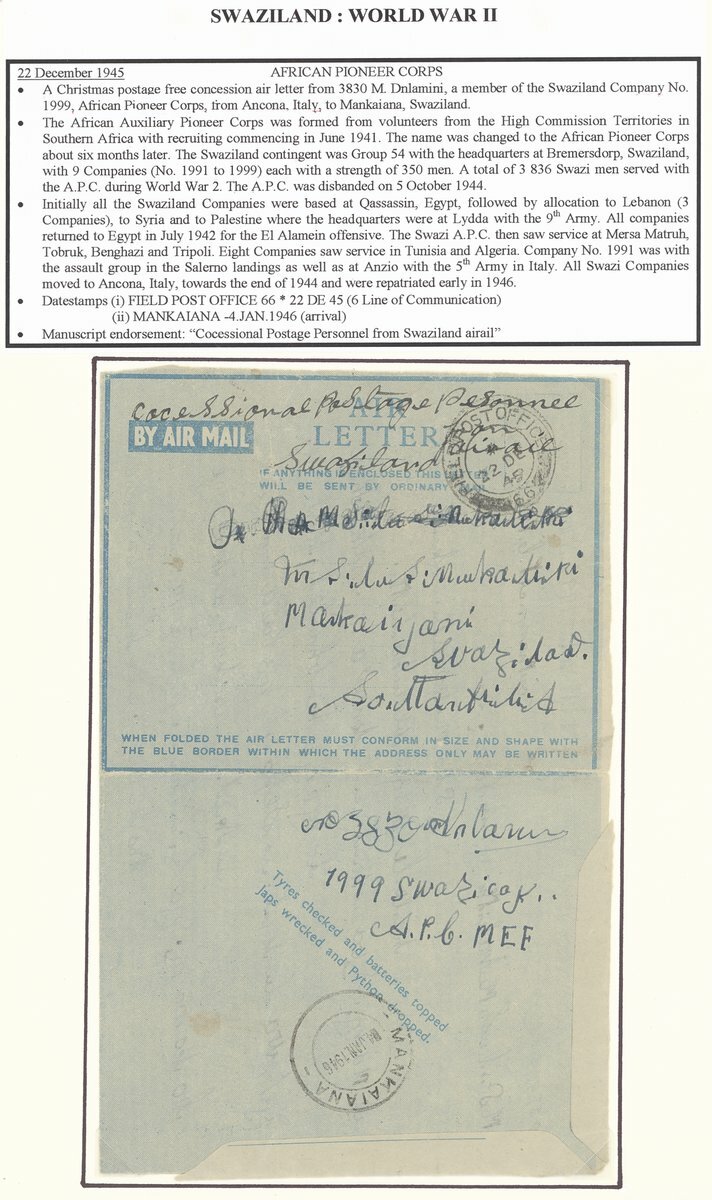 SWAZILAND : WORLD WAR II
22 December 1945 AFRICAN PIONEER CORPS
• A Christmas postage free concession air letter from 3830 M. Dnlamini, a member of the Swaziland Company No.
1999, African Pioneer Corps, from Ancona, Italy, to Mankaiana, Swaziland.
• The African Auxiliary Pioneer Corps was formed from volunteers from the High Commission Territories in
Southern Africa with recruiting commencing in June 1941. The name was changed to the African Pioneer Corps
about six months later. The Swaziland contingent was Group 54 with the headquarters at Bremersdorp, Swaziland,
with 9 Companies (No. 1991 to 1999) each with a strength of 350 men. A total of 3 836 Swazi men served with
the A.P.C. during World War 2. The A.P.C. was disbanded on 5 October 1944.
• Initially all the Swaziland Companies were based at Qassassin, Egypt, followed by allocation to Lebanon (3
Companies), to Syria and to Palestine where the headquarters were at Lydda with the 9th Army. All companies
returned to Egypt in July 1942 for the El Alamein offensive. The Swazi A.P.C. then saw service at Mersa Matruh,
Tobruk, Benghazi and Tripoli. Eight Companies saw service in Tunisia and Algeria. Company No. 1991 was with
the assault group in the Salerno landings as well as at Anzio with the 5th Army in Italy. All Swazi Companies
moved to Ancona, Italy, towards the end of 1944 and were repatriated early in 1946.
• Datestamps (i) FIELD POST OFFICE 66 * 22 DE 45 (6 Line of Communication)
(ii) MANKAIANA -4.JAN.1946 (arrival)
• Manuscript endorsement: “Cocessional Postage Personnel from Swaziland airail”
cocessional Postage
AIR
BY AIR MAIL
LETTER
Swaziland
FIELD POST OFFICE
22 DE
45
66
IF ANYTHING IS ENCLOSED THIS LETTER
WILL BE SENT BY ORDINARY MAIL
Swazilad.
WHEN FOLDED THE AIR LETTER MUST CONFORM IN SIZE AND SHAPE WITH
THE BLUE BORDER WITHIN WHICH THE ADDRESS ONLY MAY BE WRITTEN
1999 Swazi coy..
A.P.C. MEF
Tyres checked and batteries topped
Japs wrecked and Python dropped.
MANKAIANA
JAN 1946